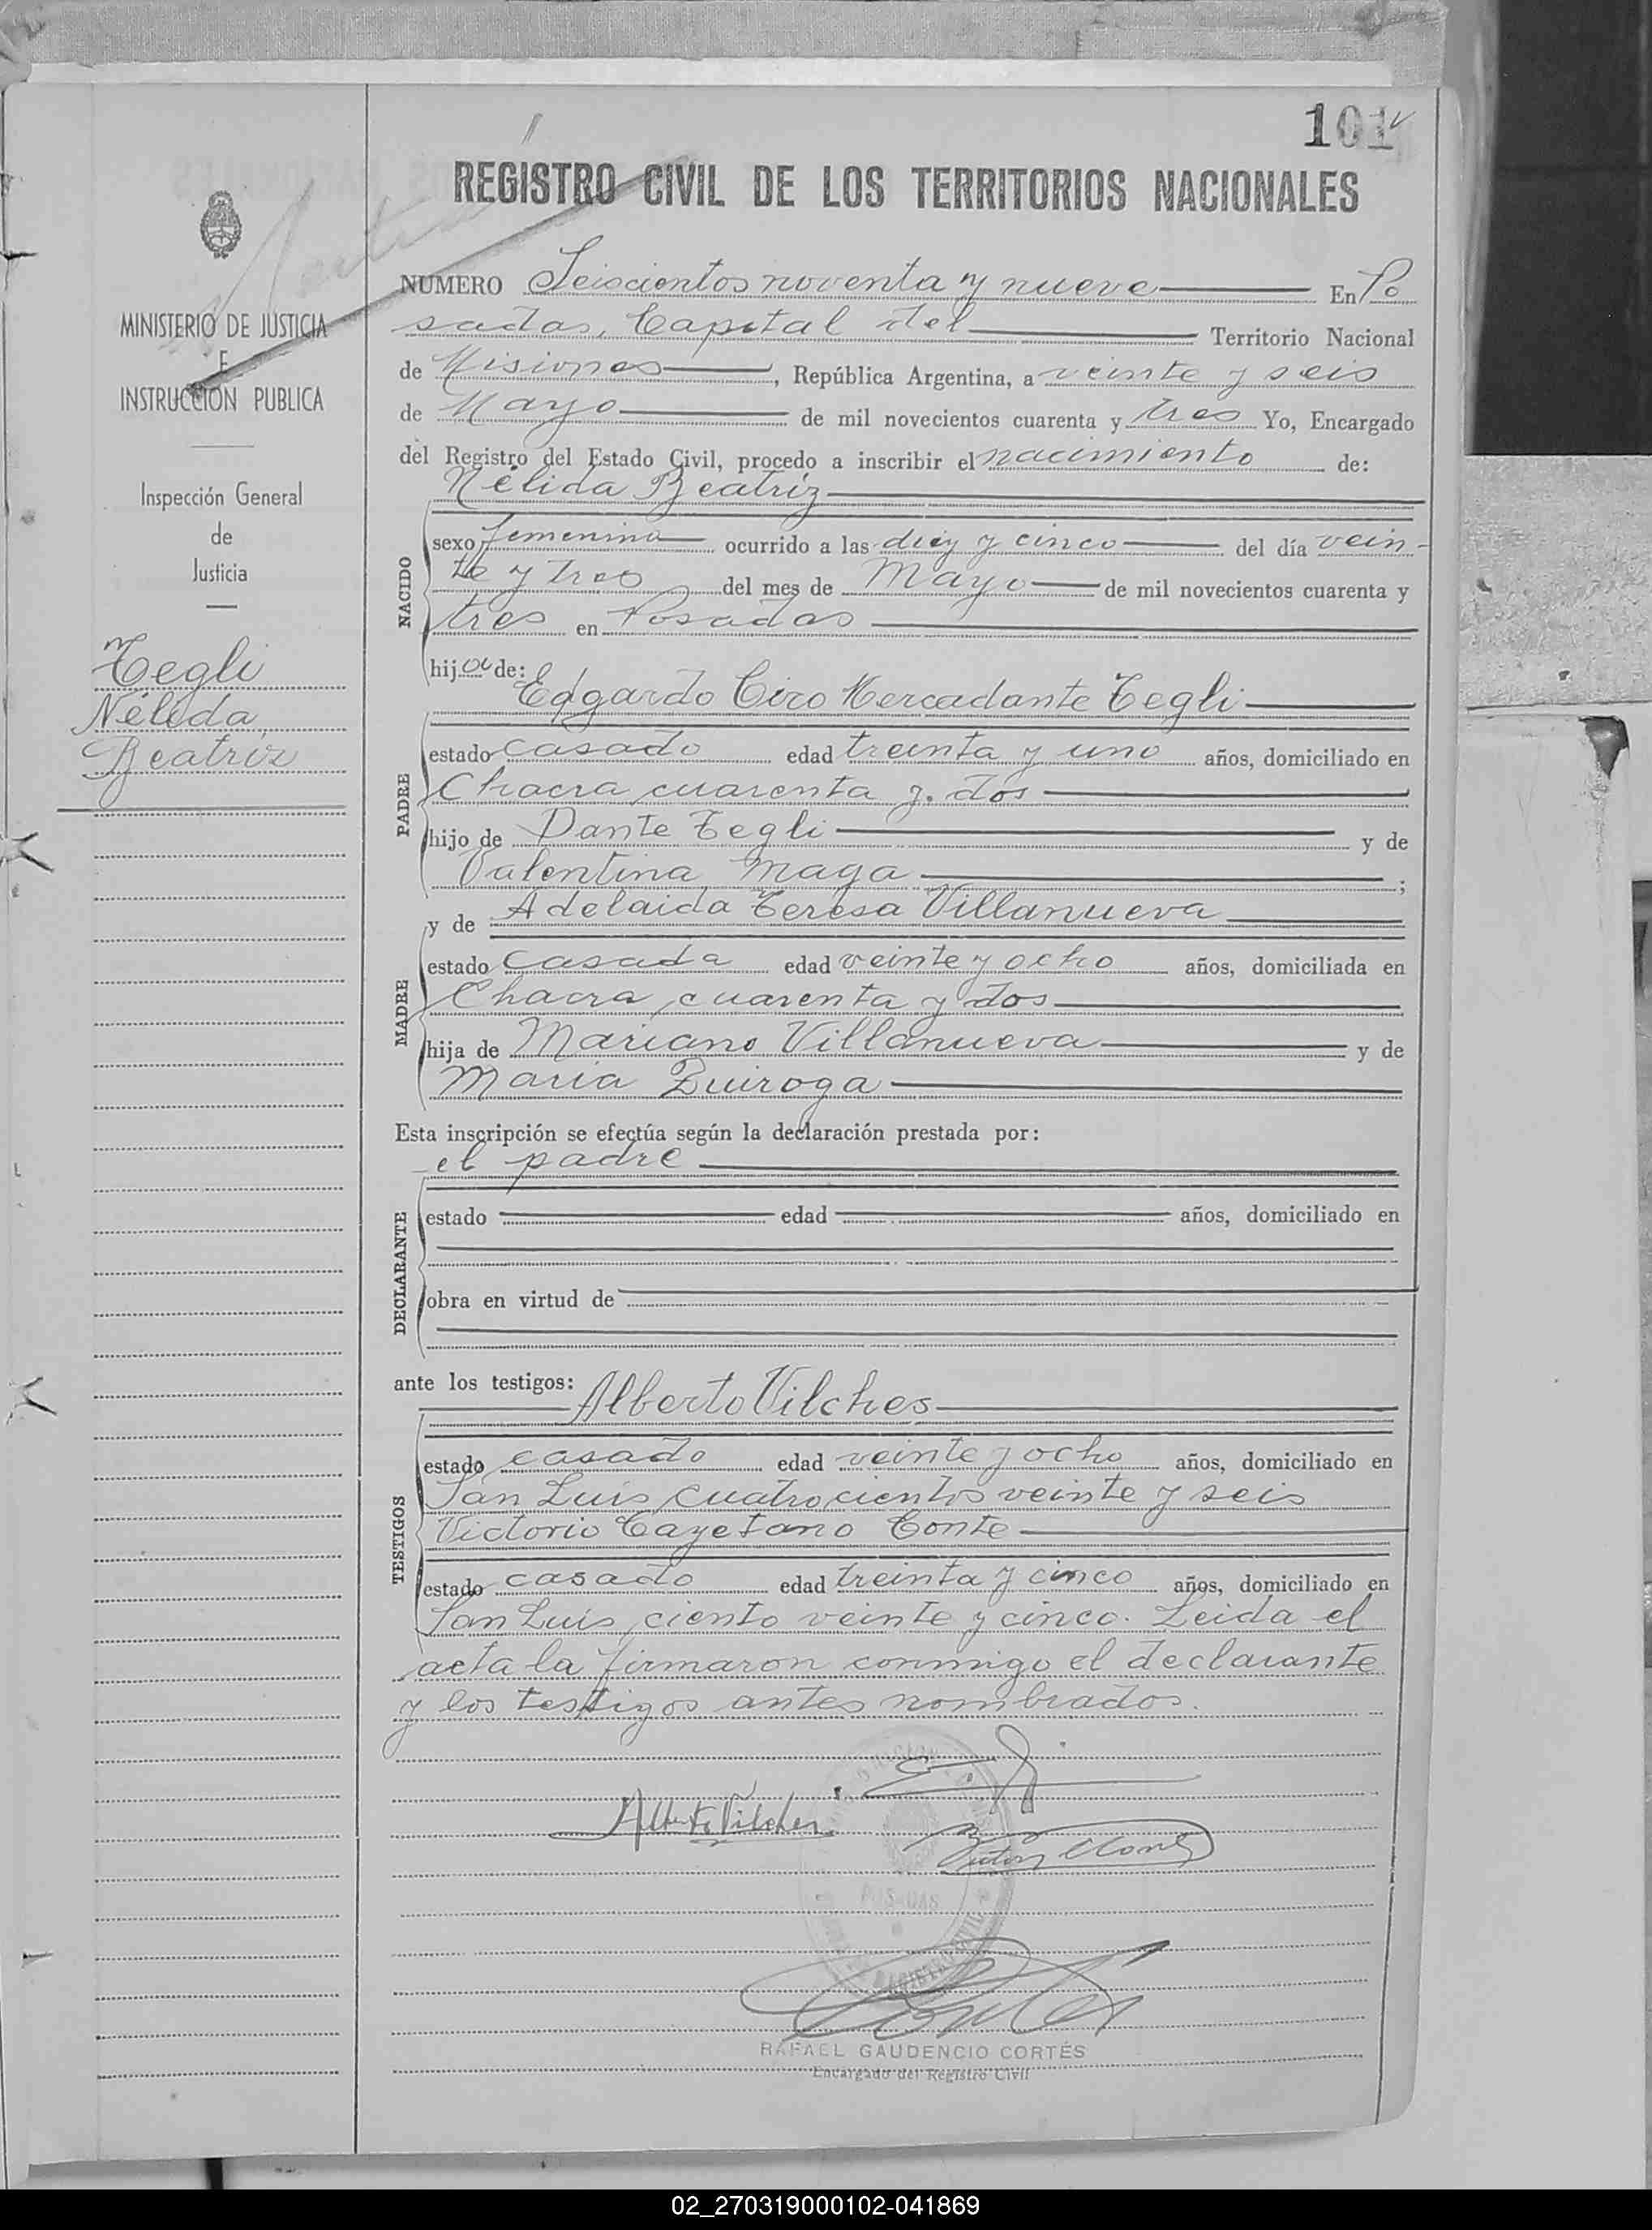 101
REGISTRO CIVIL DE LOS TERRITORIOS NACIONALES
MINISTERIO DE JUSTICIA
E
INSTRUCCIÓN PUBLICA
Inspección General
de
Justicia
Tegli
Nélida
Beatriz
NUMERO Seiscientos noventa y nueve En Po
sadas, Capital del Territorio Nacional
de Misiones, República Argentina, a veinte y seis
de Mayo de mil novecientos cuarenta y tres Yo, Encargado
del Registro del Estado Civil, procedo a inscribir el nacimiento de:
Nélida Beatriz
NACIDO
sexo femenino ocurrido a las diez y cinco del día vein-
te y tres del mes de Mayo de mil novecientos cuarenta y
tres en Posadas
hija de:
Edgardo Ciro Mercadante Tegli
PADRE
estado casado edad treinta y uno años, domiciliado en
Chacra cuarenta y dos
hijo de Dante Tegli y de
Valentina Maga;
y de Adelaida Teresa Villanueva
MADRE
estado casada edad veinte y ocho años, domiciliada en
Chacra cuarenta y dos
hija de Mariano Villanueva y de
Maria Quiroga
Esta inscripción se efectúa según la declaración prestada por:
el padre
DECLARANTE
estado edad años, domiciliado en
obra en virtud de
ante los testigos:
Alberto Vilches
TESTIGOS
estado casado edad veinte y ocho años, domiciliado en
San Luis cuatrocientos veinte y seis
Victorio Cayetano Conte
estado casado edad treinta y cinco años, domiciliado en
San Luis ciento veinte y cinco. Leida el
acta la firmaron conmigo el declarante
y los testigos antes nombrados.
Alberto Vilches
POSADAS
RAFAEL GAUDENCIO CORTÉS
Encargado del Registro Civil
02_270319000102-041869